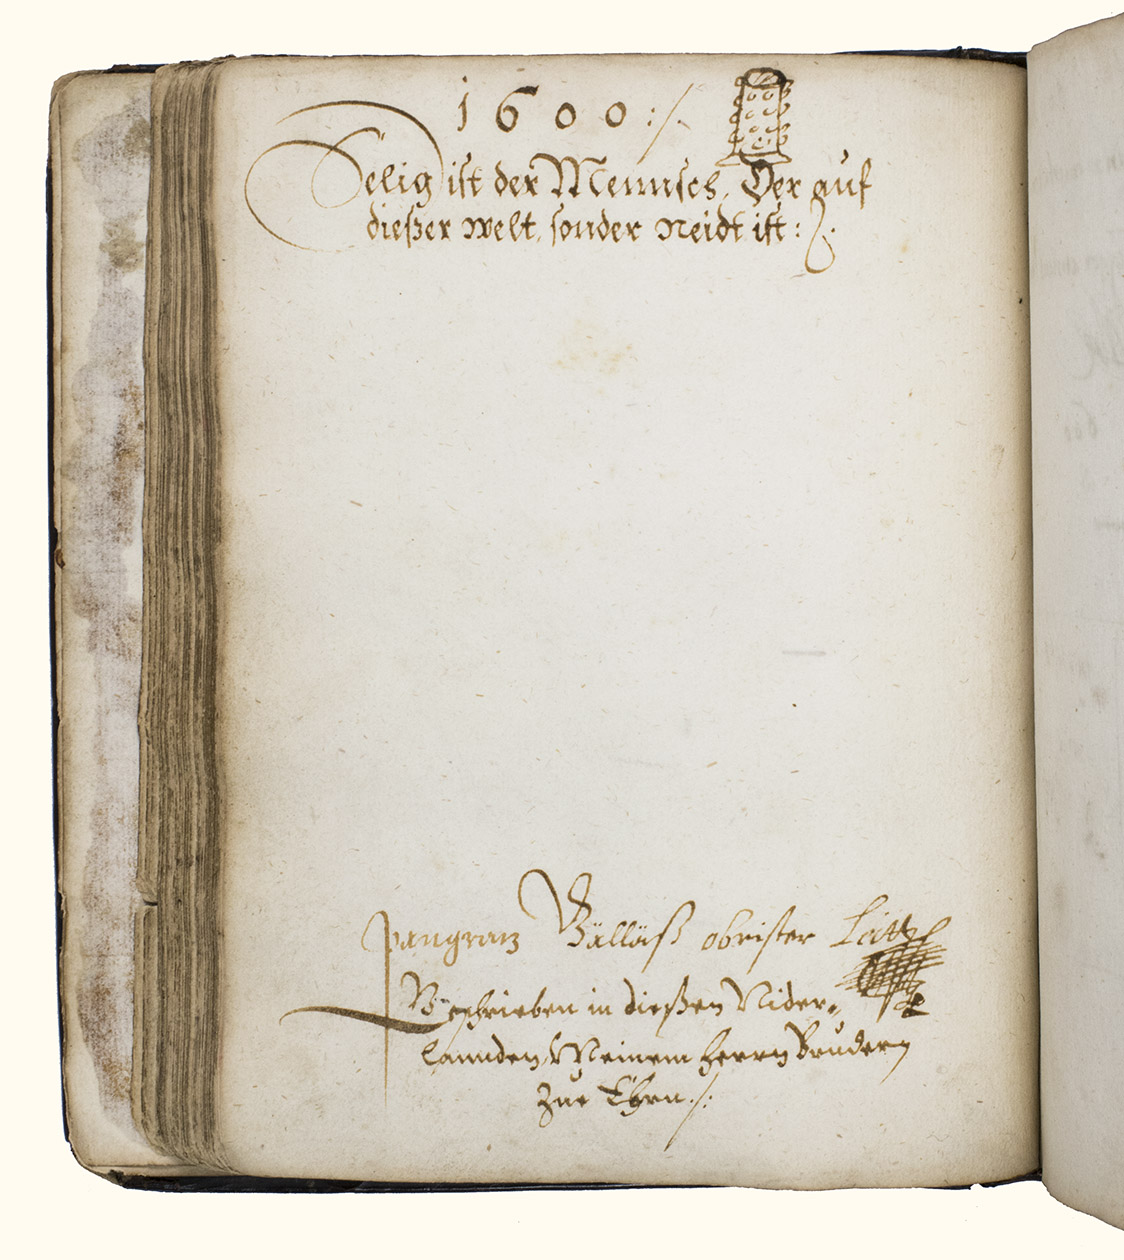 1600:/.
Selig ist der Mennsch, Der auf
dießer welt, sonder Neidt ist:
Pangratz Gälläß obrister Leitt
Beschrieben in dießen Nider-
lannden, Meinem herrn Brudern
zue Ehrn./: